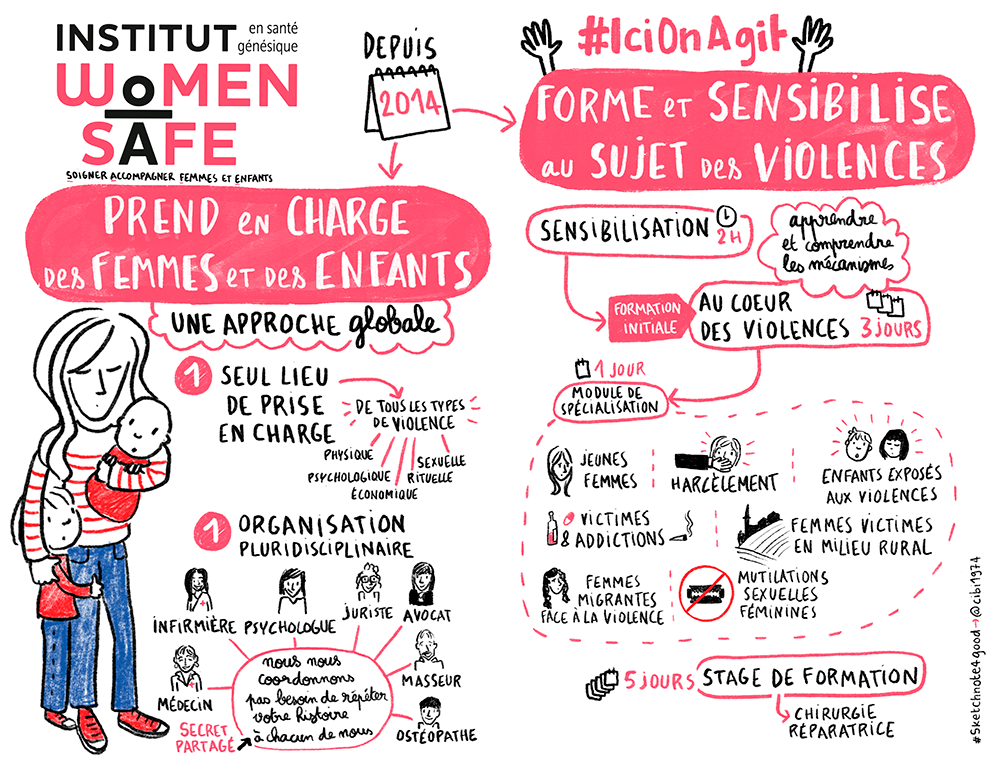 INSTITUT en santé génésique
WoMEN
SAFE
SOIGNER ACCOMPAGNER FEMMES ET ENFANTS
DEPUIS
2014
PREND en CHARGE
des FEMMES ET DES ENFANTS
UNE APPROCHE globale
1 SEUL LIEU
DE PRISE
EN CHARGE
DE TOUS LES TYPES
DE VIOLENCE
PHYSIQUE
PSYCHOLOGIQUE
ÉCONOMIQUE
RITUELLE
SEXUELLE
1 ORGANISATION
PLURIDISCIPLINAIRE
INFIRMIÈRE
PSYCHOLOGUE
JURISTE
AVOCAT
MÉDECIN
MASSEUR
OSTÉOPATHE
nous nous
coordonnons
pas besoin de répéter
votre histoire
à chacun de nous
SECRET
PARTAGÉ
#IciOnAgit
FORME ET SENSIBILISE
au SUJET des VIOLENCES
SENSIBILISATION 2H
apprendre
et comprendre
les mécanismes
FORMATION
INITIALE
AU COEUR
DES VIOLENCES 3 JOURS
1 JOUR
MODULE DE
SPÉCIALISATION
JEUNES
FEMMES
HARCÈLEMENT
ENFANTS EXPOSÉS
AUX VIOLENCES
VICTIMES
& ADDICTIONS
FEMMES VICTIMES
EN MILIEU RURAL
FEMMES
MIGRANTES
FACE À LA VIOLENCE
MUTILATIONS
SEXUELLES
FÉMININES
5 JOURS STAGE DE FORMATION
CHIRURGIE
RÉPARATRICE
#Sketchnote4good → @cibi1974